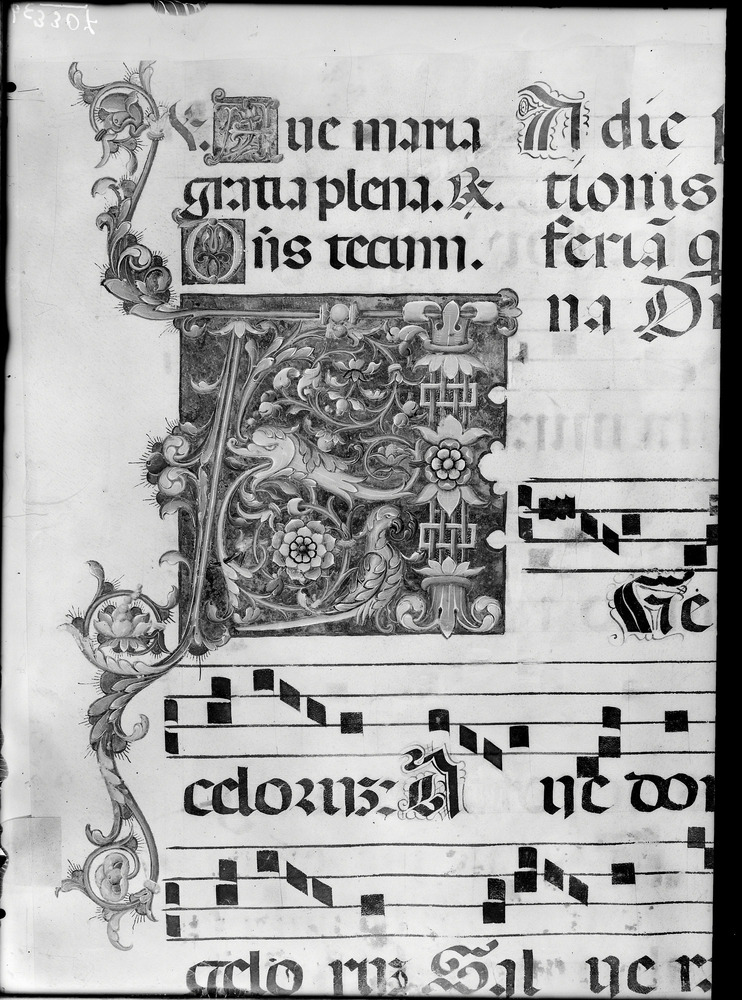 V. Aue maria
gratia plena. R.
Dñs tecum.
A die p
tionis
feriã q
na Do
A
Ge
celoruz: Aue dom
gelo ruz Sal ue r